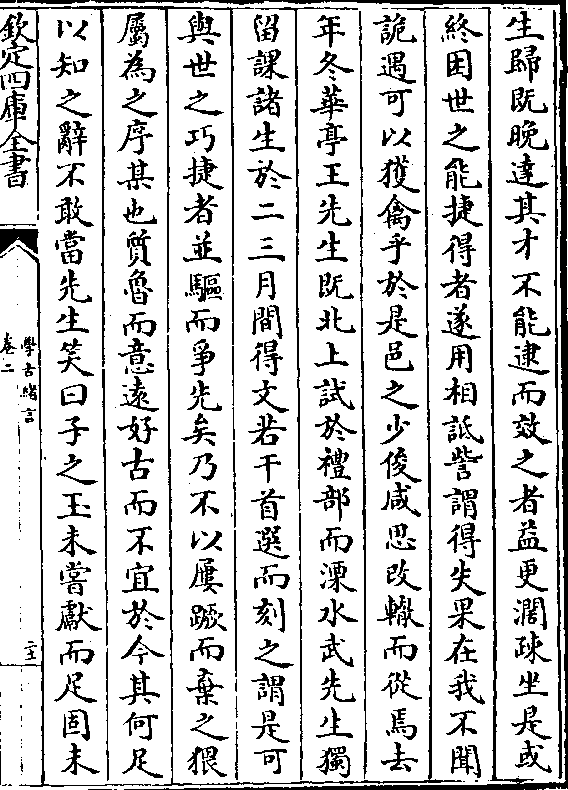 生歸既晚達其才不能逮而效之者益更濶疎坐是或
終困世之能捷得者遂用相詆訾謂得失果在我不聞
詭遇可以獲禽乎於是邑之少俊咸思改轍而從焉去
年冬華亭王先生既北上試於禮部而溧水武先生獨
留課諸生於二三月間得文若干首選而刻之謂是可
與世之巧捷者並驅而爭先矣乃不以屢蹶而棄之猥
屬為之序某也質魯而意遠好古而不宜於今其何足
以知之辭不敢當先生笑曰子之玉未嘗獻而足固未
欽定四庫全書
學古緒言
卷二